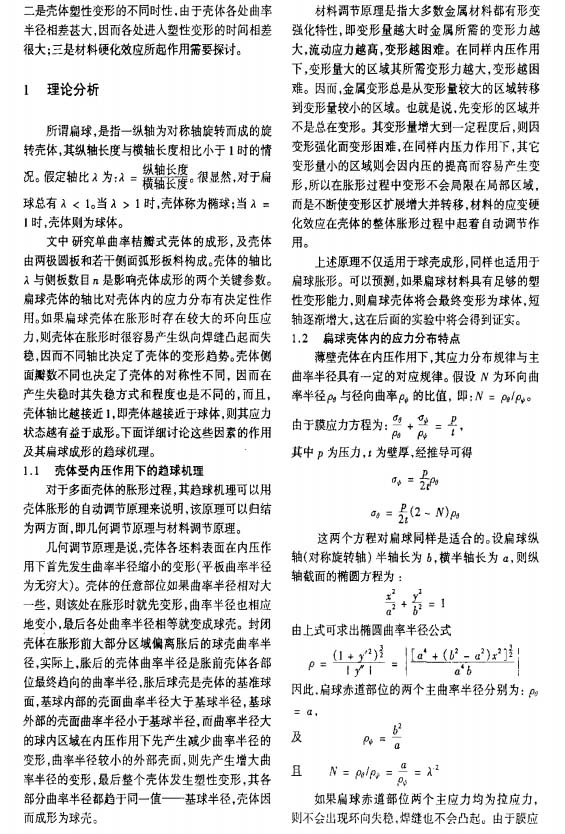 二是壳体塑性变形的不同时性,由于壳体各处曲率
半径相差甚大,因而各处进入塑性变形的时间相差
很大;三是材料硬化效应所起作用需要探讨。
1 理论分析
所谓扁球,是指一纵轴为对称轴旋转而成的旋
转壳体,其纵轴长度与横轴长度相比小于1时的情
况。假定轴比 λ 为:λ = 纵轴长度/横轴长度。很显然,对于扁
球总有 λ < 1。当 λ > 1 时,壳体称为椭球;当 λ =
1时,壳体则为球体。
文中 研究单曲率桔瓣式壳体的成形,及壳体
由两极圆板和若干侧面弧形板料构成。壳体的轴比
λ 与侧板数目 n 是影响壳体成形的两个关键参数。
扁球壳体的轴比对壳体内的应力分布有决定性作
用。如果扁球壳体在胀形时存在较大的环向压应
力,则壳体在胀形时很容易产生纵向焊缝凸起而失
稳,因而不同轴比决定了壳体的变形趋势。壳体侧
面瓣数不同也决定了壳体的对称性不同, 因而在
产生失稳时其失稳方式和程度也是不同的,而且,
壳体轴比越接近1,即壳体越接近于球体,则其应力
状态越有益于成形。下面详细讨论这些因素的作用
及其扁球成形的趋球机理。
1.1 壳体受内压作用下的趋球机理
对于多面壳体的胀形过程,其趋球机理可以用
壳体胀形的自动调节原理来说明,该原理可以归结
为两方面,即几何调节原理与材料调节原理。
几何调节原理是说,壳体各坯料表面在内压作
用下首先发生曲率半径缩小的变形(平板曲率半径
为无穷大)。壳体的任意部位如果曲率半径相对大
一些, 则该处在胀形时就先变形,曲率半径也相应
地变小,最后各处曲率半径相等就变成球壳。封闭
壳体在胀形前大部分区域偏离胀后的球壳曲率半
径,实际上,胀后的壳体曲率半径是胀前壳体各部
位最终趋向的曲率半径,胀后球壳是壳体的基准球
面,基球内部的壳面曲率半径大于基球半径,基球
外部的壳面曲率半径小于基球半径,而曲率半径大
的球内区域在内压作用下先产生减少曲率半径的
变形,曲率半径较小的外部壳面,则先产生增大曲
率半径的变形,最后整个壳体发生塑性变形,其各
部分曲率半径都趋于同一值——基球半径,壳体因
而成形为球壳。
材料调节原理是指大多数金属材料都有形变
强化特性,即变形量越大时金属所需的变形力越
大,流动应力越高,变形越困难。在同样内压作用
下,变形量大的区域其所需变形力越大,变形越困
难。因而,金属变形总是从变形量较大的区域转移
到变形量较小的区域。也就是说,先变形的区域并
不是总在变形。其变形量增大到一定程度后,则因
变形强化而变形困难,在同样内压力作用下,其它
变形量小的区域则会因内压的提高而容易产生变
形,所以在胀形过程中变形不会局限在局部区域,
而是不断使变形区扩展增大并转移,材料的应变硬
化效应在壳体的整体胀形过程中起着自动调节作
用。
上述原理不仅适用于球壳成形,同样也适用于
扁球胀形。可以预测,如果扁球材料具有足够的塑
性变形能力,则扁球壳体将会最终变形为球体,短
轴逐渐增大,这在后面的实验中将会得到证实。
1.2 扁球壳体内的应力分布特点
薄壁壳体在内压作用下,其应力分布规律与主
曲率半径具有一定的对应规律。假设 N 为环向曲
率半径ρθ 与径向曲率ρφ 的比值, 即:N = ρθ/ρφ。
由于膜应力方程为: σθ/ρθ + σφ/ρφ = p/t,
其中 p 为压力,t 为壁厚,经推导可得
σφ = p/2t ρθ
σθ = p/2t (2 - N)ρθ
这两个方程对扁球同样是适合的。设扁球纵
轴(对称旋转轴) 半轴长为 b,横半轴长为 a,则纵
轴截面的椭圆方程为 :
x²/a² + y²/b² = 1
由上式可求出椭圆曲率半径公式
ρ = (1 + y′²)^(3/2)/|y″| = |[a⁴ + (b² - a²)x²]^(3/2)/a⁴b|
因此,扁球赤道部位的两个主曲率半径分别为: ρθ
= a,
及 ρφ = b²/a
且 N = ρθ/ρφ = a/ρφ = λ⁻²
如果扁球赤道部位两个主应力均为拉应力,
则不会出现环向失稳,焊缝也不会凸起。由于膜应